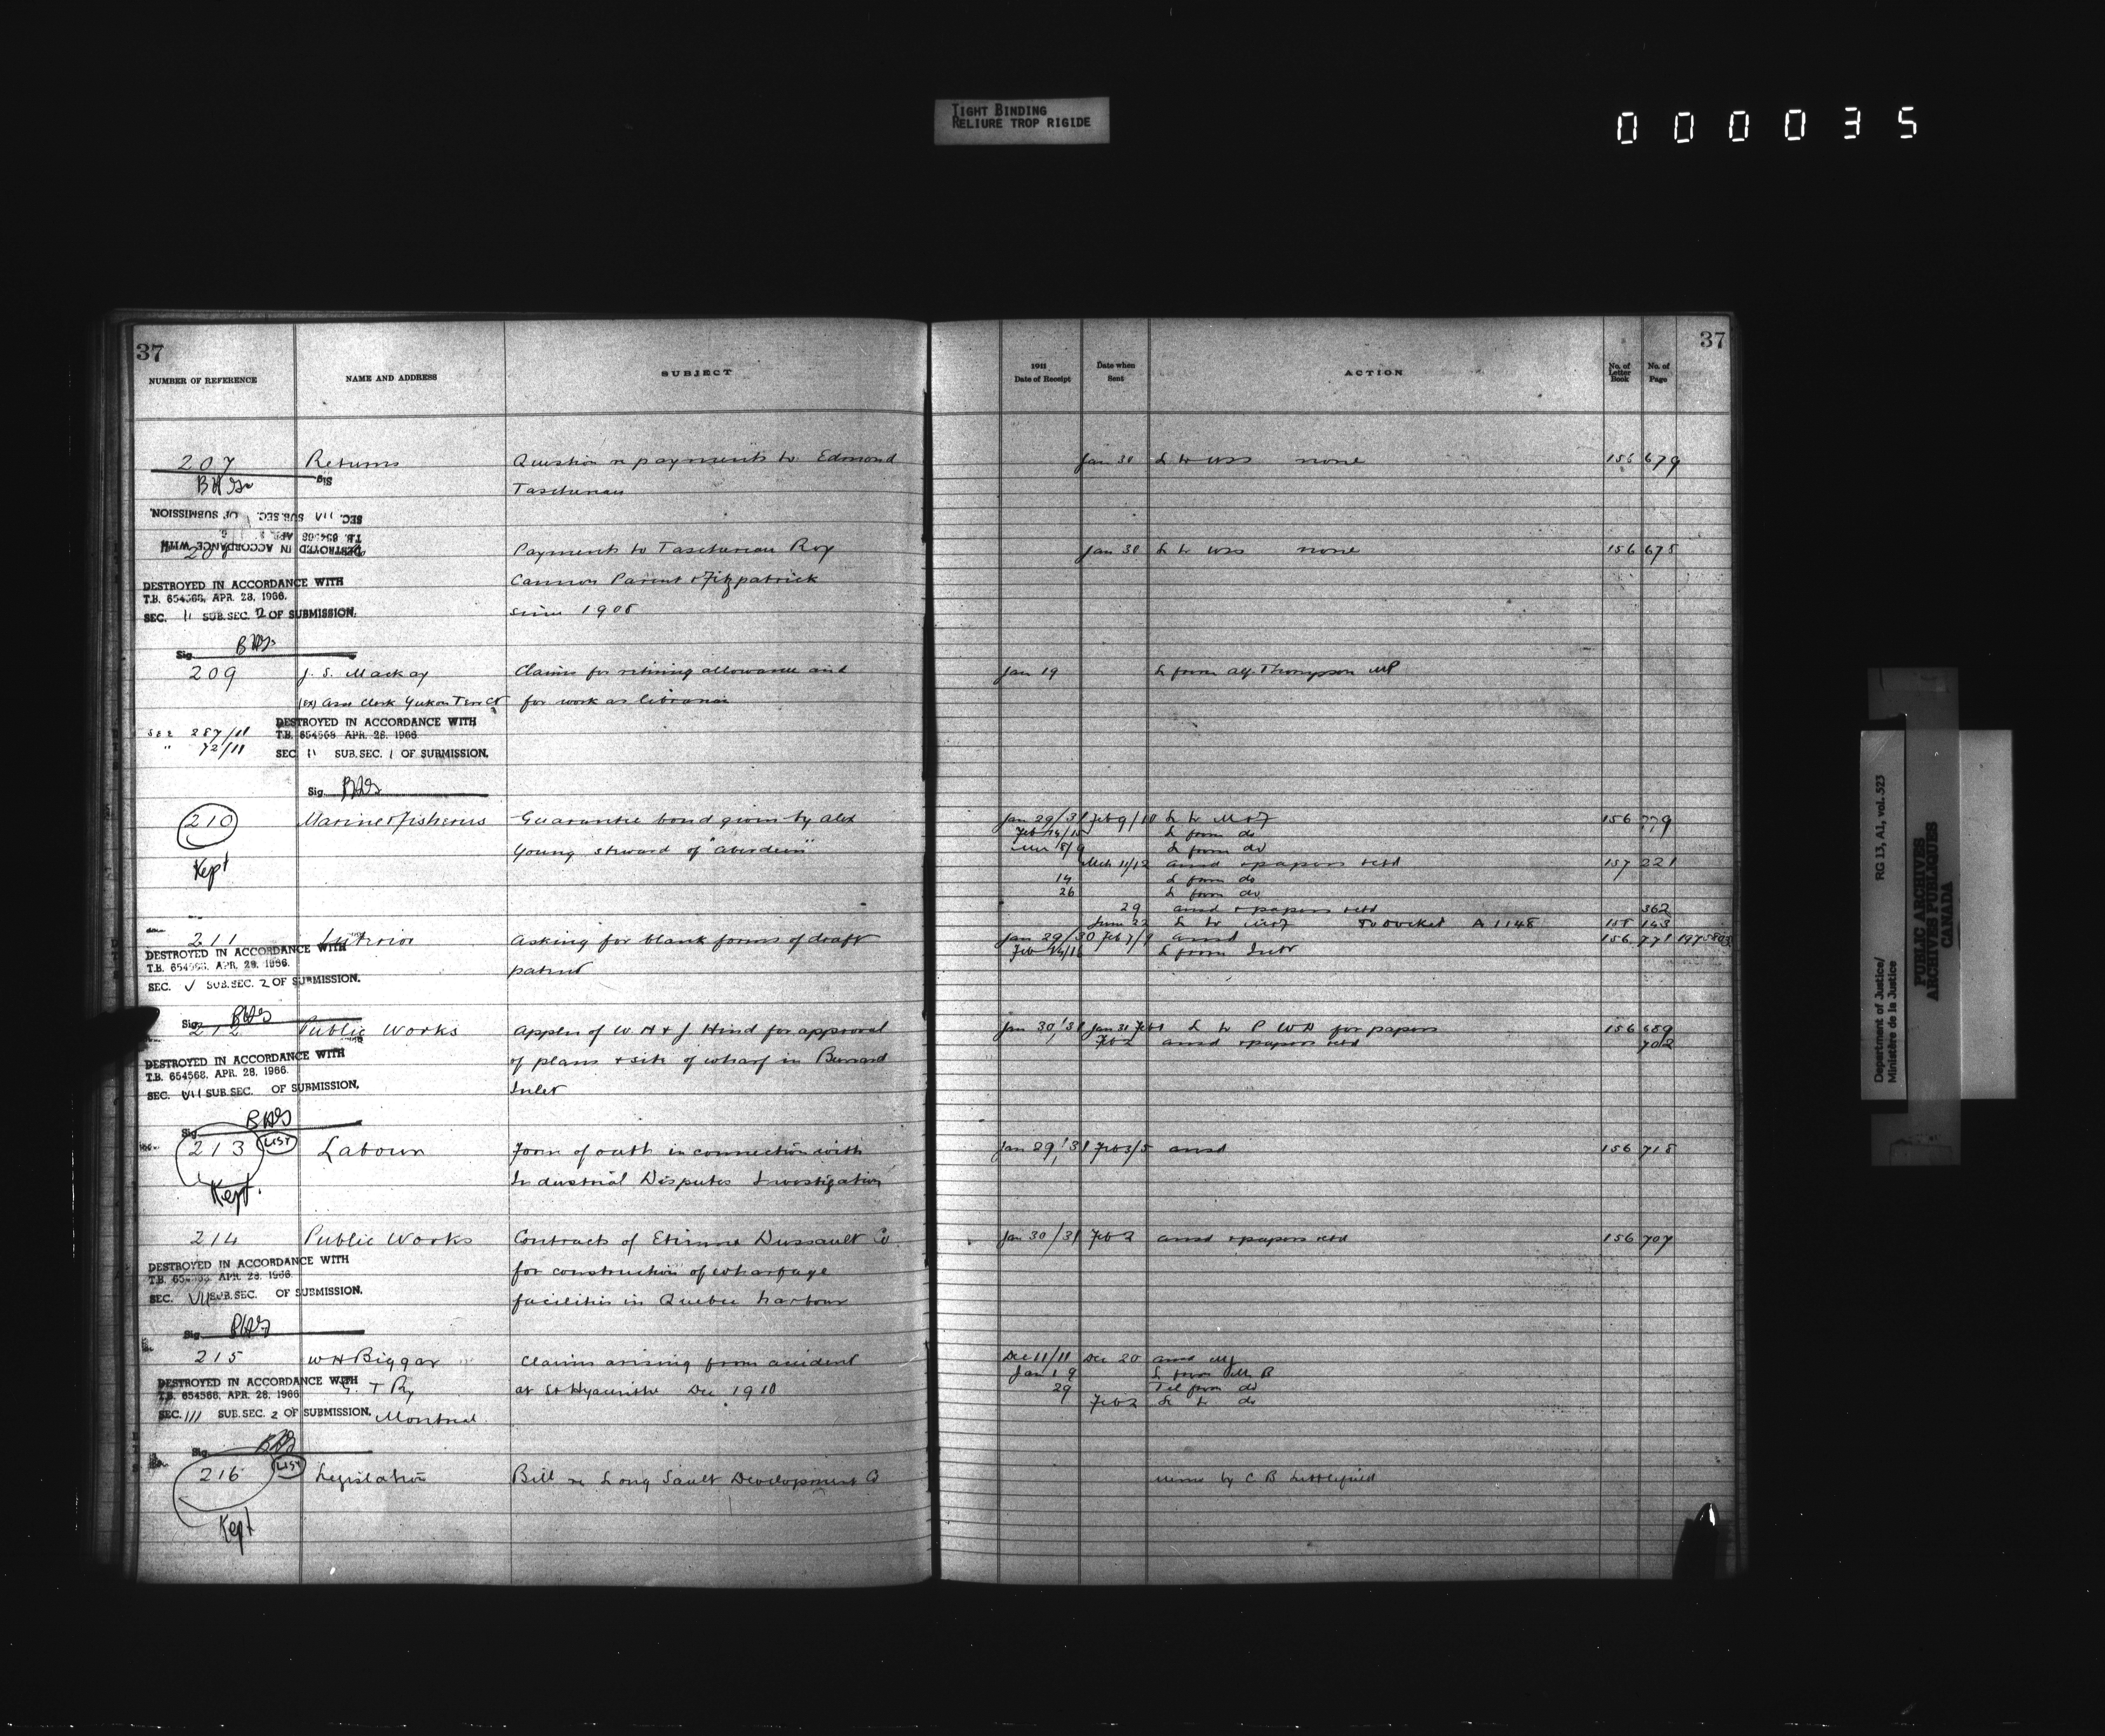 TIGHT BINDING
RELIURE TROP RIGIDE
000035
37
NUMBER OF REFERENCE NAME AND ADDRESS SUBJECT
207 Returns Question re payments to Edmond
Sig
Taschereau
SEC. VII SUB.SEC. OF SUBMISSION.
T.B. 654568 APR. 28,
DESTROYED IN ACCORDANCE WITH
Payments to Taschereau Roy
DESTROYED IN ACCORDANCE WITH
Cannon Parent & Fitzpatrick
T.B. 654568, APR. 28, 1966.
SEC. 11 SUB.SEC. 2 OF SUBMISSION.
since 1908
Sig.
209 J. S. Mackay Claims for retiring allowance and
(ex) Asst Clerk Yukon Terr Ct for work as librarian
DESTROYED IN ACCORDANCE WITH
see 287/11 T.B. 654568 APR. 28, 1966
" 72/11 SEC. 11 SUB.SEC. 1 OF SUBMISSION.
Sig.
210 Marine & fisheries Guarantee bond given by Alex
Young steward of "Aberdeen"
Kept
211 Interior Asking for blank forms of draft
DESTROYED IN ACCORDANCE WITH
T.B. 654568, APR. 28, 1966.
patent
SEC. V SUB.SEC. 2 OF SUBMISSION.
Sig.
212 Public Works Applcn of W H & J Hind for approval
DESTROYED IN ACCORDANCE WITH
of plans & site of wharf in Burrard
T.B. 654568, APR. 28, 1966.
SEC. VII SUB.SEC. OF SUBMISSION.
Inlet
Sig.
213 LIST Labour Form of oath in connection with
Industrial Disputes Investigation
Kept.
214 Public Works Contracts of Etienne Dussault Co
DESTROYED IN ACCORDANCE WITH
for construction of wharfage
T.B. 654568 APR. 28, 1966
SEC. VII SUB.SEC. OF SUBMISSION.
facilities in Quebec harbour
Sig.
215 W H Biggar Claims arising from accident
DESTROYED IN ACCORDANCE WITH
G. T Ry at St Hyacinthe Dec 1910
T.B. 654568, APR. 28, 1966
SEC. 111 SUB.SEC. 2 OF SUBMISSION.
Montreal
Sig.
216 LIST Legislation Bill re Long Sault Development Co
Kept
37
1911 Date of Receipt Date when Sent ACTION No. of Letter Book No. of Page
Jan 30 L to none 156 679
Jan 30 L to none 156 678
Jan 19 L from Alf. Thompson MP
Jan 29/31 Feb 9/10 L to M & F 156 779
Feb 14/15 L from do
Mar 8/9 L from do
Mch 11/12 ansd & papers retd 157 221
14 L from do
26 L from do
29 ansd & papers retd 362
June 22 L to To Docket A 1148 158 143
Jan 29/30 Feb 7/9 ansd 156 771
Feb 14/16 L from Intr
Jan 30/31 Jan 31 Feb 1 L to P W D for papers 156 689
Feb 2 ansd & papers retd 702
Jan 29/31 Feb 3/5 ansd 156 718
Jan 30/31 Feb 2 ansd & papers retd 156 707
Dec 11/11 Dec 20 ansd
Jan 19 L from Mr B
29 Tel from do
Feb 2 L to do
memo by C B Littlefield
Department of Justice/
Ministère de la Justice
RG 13, A1, vol. 523
PUBLIC ARCHIVES
ARCHIVES PUBLIQUES
CANADA